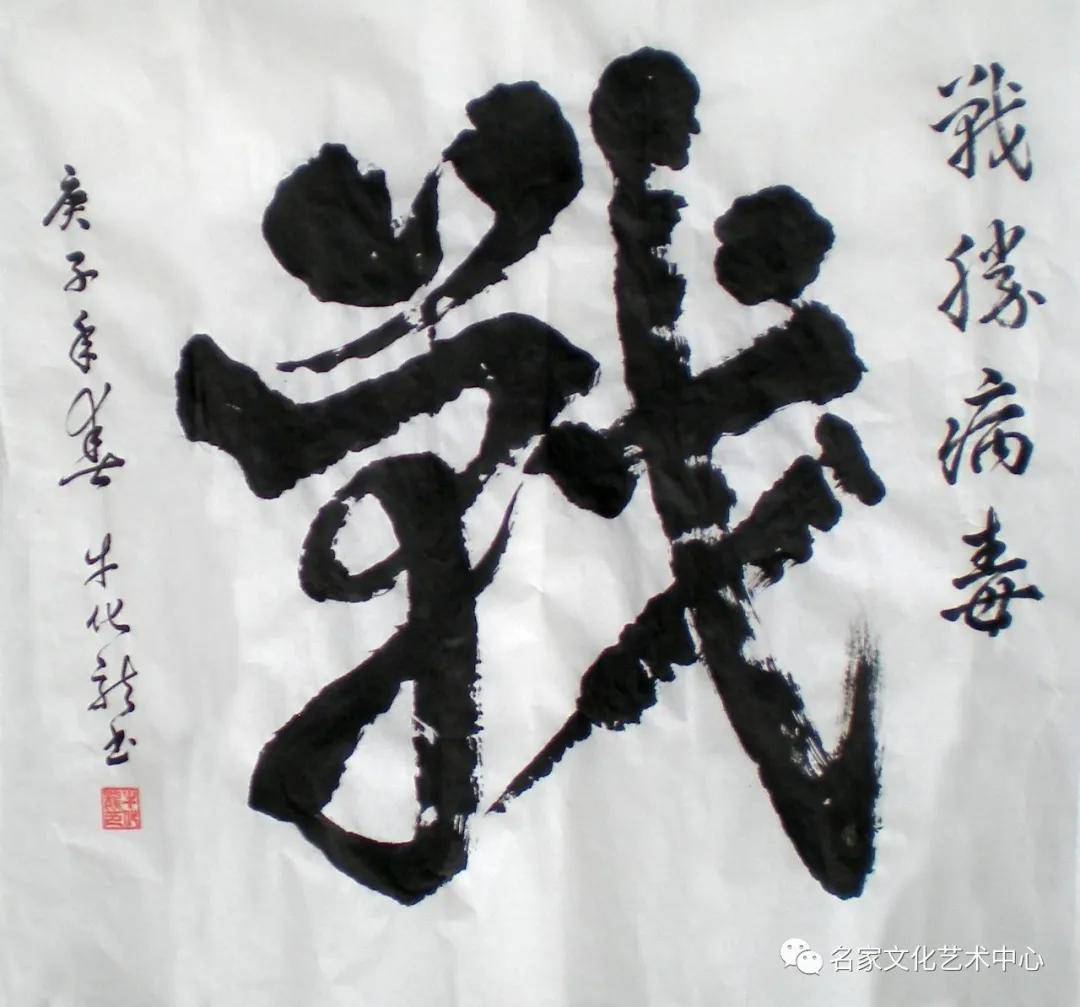 戰勝病毒
戰
庚子年春 牛化龙书
名家文化艺术中心